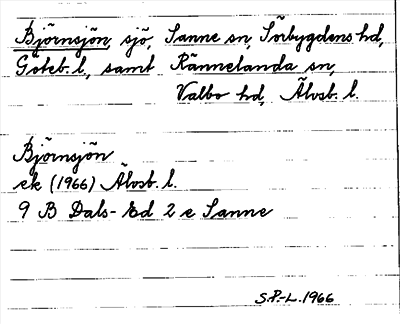 Björnsjön, sjö, Sanne sn, Sörbygdens hd,
Göteb. l., samt Rännelanda sn,
Valbo hd, Älvsb. l.
Björnsjön
ek (1966) Älvsb. l.
9 B Dals-Ed 2 e Sanne
S.P.-L. 1966